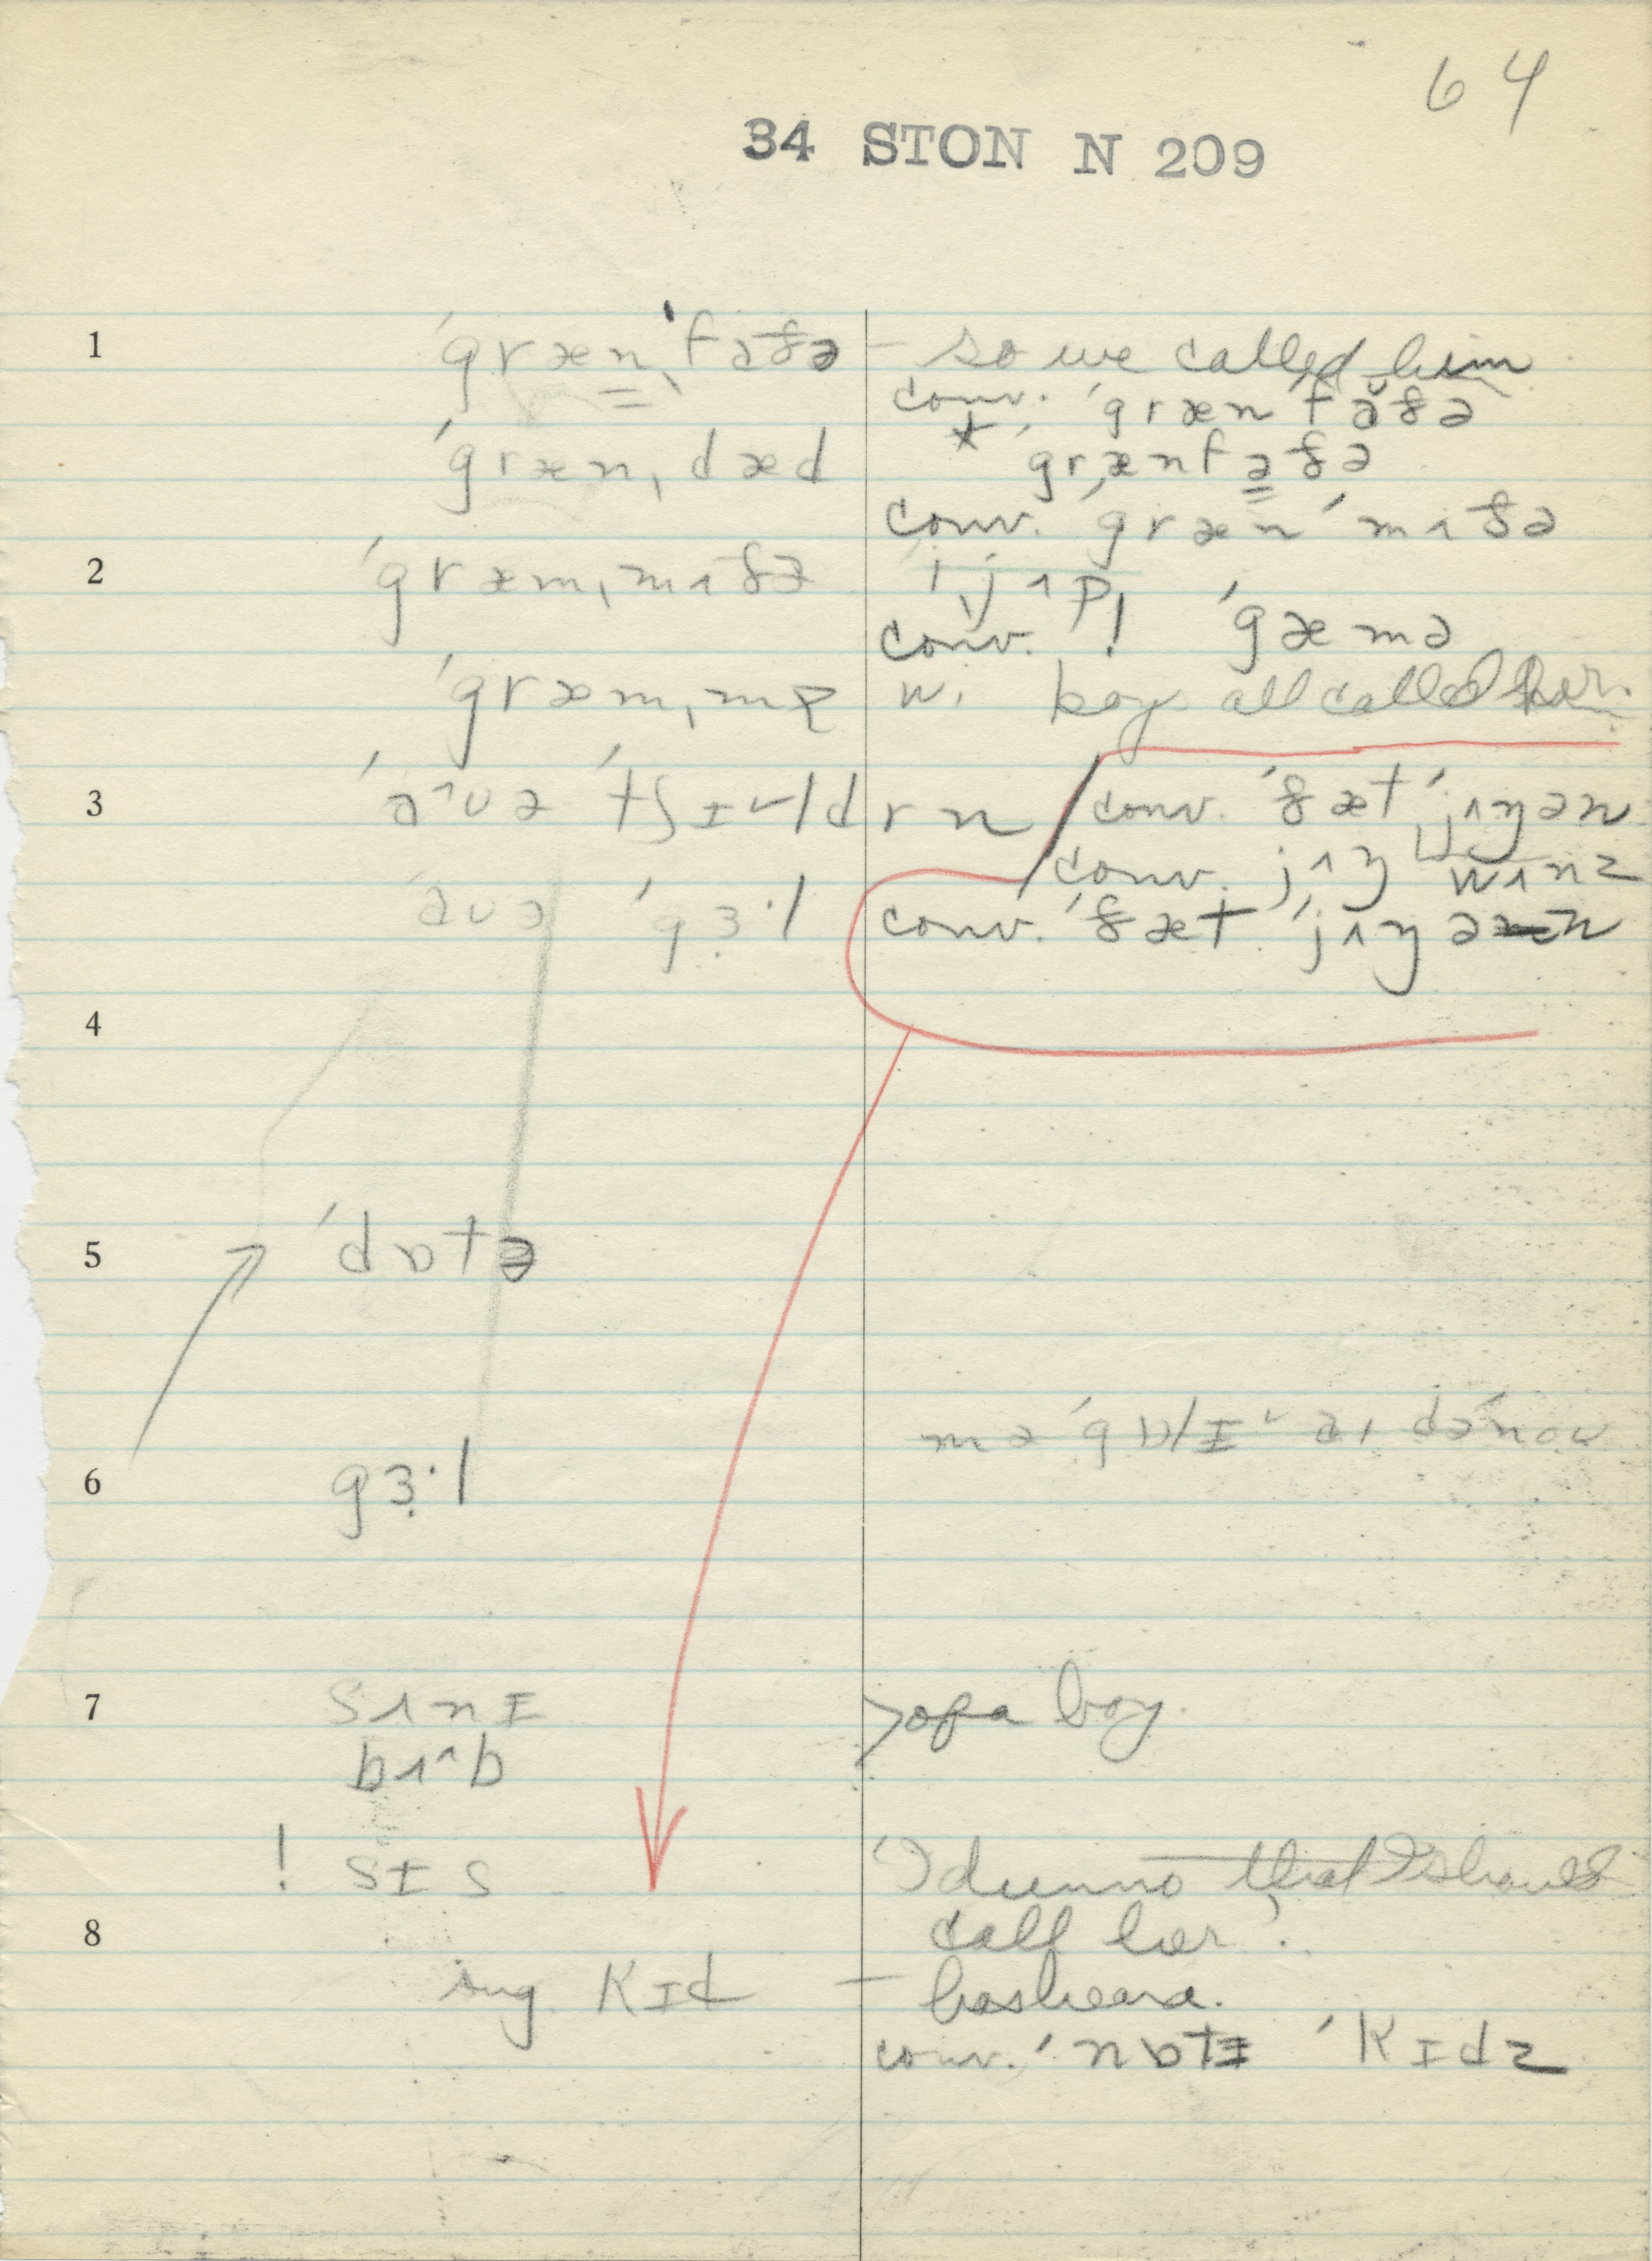 64
34 STON N 209
1 ˈgræn̳ˌfaðə – so we called him
conv. ˈgrænˈfăðə
ˈgrænˌdæd * ˈgrænfa̳ðə
conv. ˈgrænˈmʌðə
2 ˈgræmˌmʌðə ˈjʌp!
conv. ! ˈgæmə
ˈgræmˌmɐ w. boys all called her.
3 ˈaˆʊə ˈtʃɪ˅ldrn conv. ˈðæt ˈjʌŋən
conv. jʌŋ wʌnz
aʊə ˈgɜ·l conv. ˈðæt ˈjʌŋən
4
5 ˈdɒtə
mə ˈgɒlɪ˅ aɪ dəˈnoʊ
6 gɜ·l
7 sʌnɪ > of a boy.
bʌˆb
! sɪs 'I dunno that I should
8 call her'.
sug. kɪd – has heard.
conv. ˈnɒtɪ ˈkɪdz